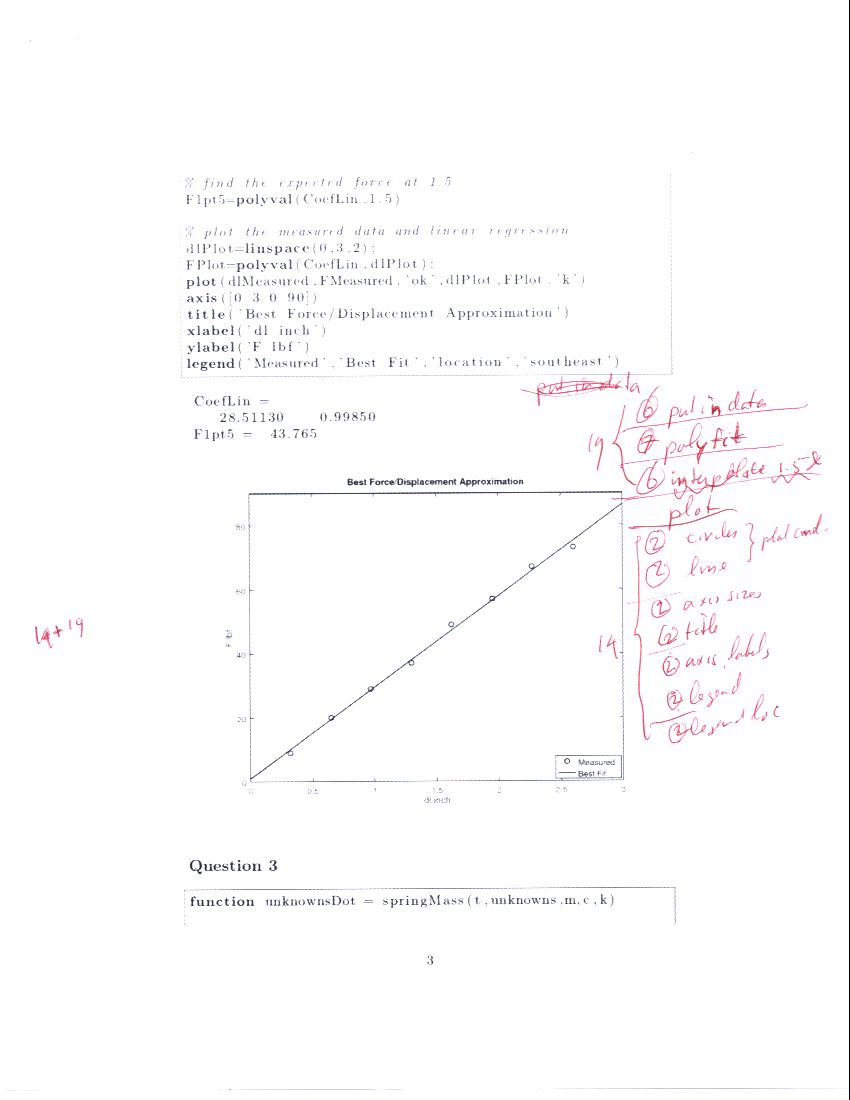 % find the expected force at 1.5
F1pt5=polyval(CoefLin,1.5)
% plot the measured data and linear regression
dlPlot=linspace(0,3,2);
FPlot=polyval(CoefLin,dlPlot);
plot(dlMeasured,FMeasured,'ok',dlPlot,FPlot,'k')
axis([0 3 0 90])
title('Best Force/Displacement Approximation')
xlabel('dl inch')
ylabel('F lbf')
legend('Measured','Best Fit','location','southeast')
put in data
CoefLin =
28.51130 0.99850
F1pt5 = 43.765
19
6 put in data
7 polyfit
6 interpolate 1.5
plot
2 circles
plot cmd.
2 line
2 axis sizes
2 title
2 axis labels
2 legend
2 legend loc
14
19
Best Force/Displacement Approximation
80
60
40
20
0
F lbf
0 0.5 1 1.5 2 2.5 3
dl inch
Measured
Best Fit
Question 3
function unknownsDot = springMass(t,unknowns,m,c,k)
3